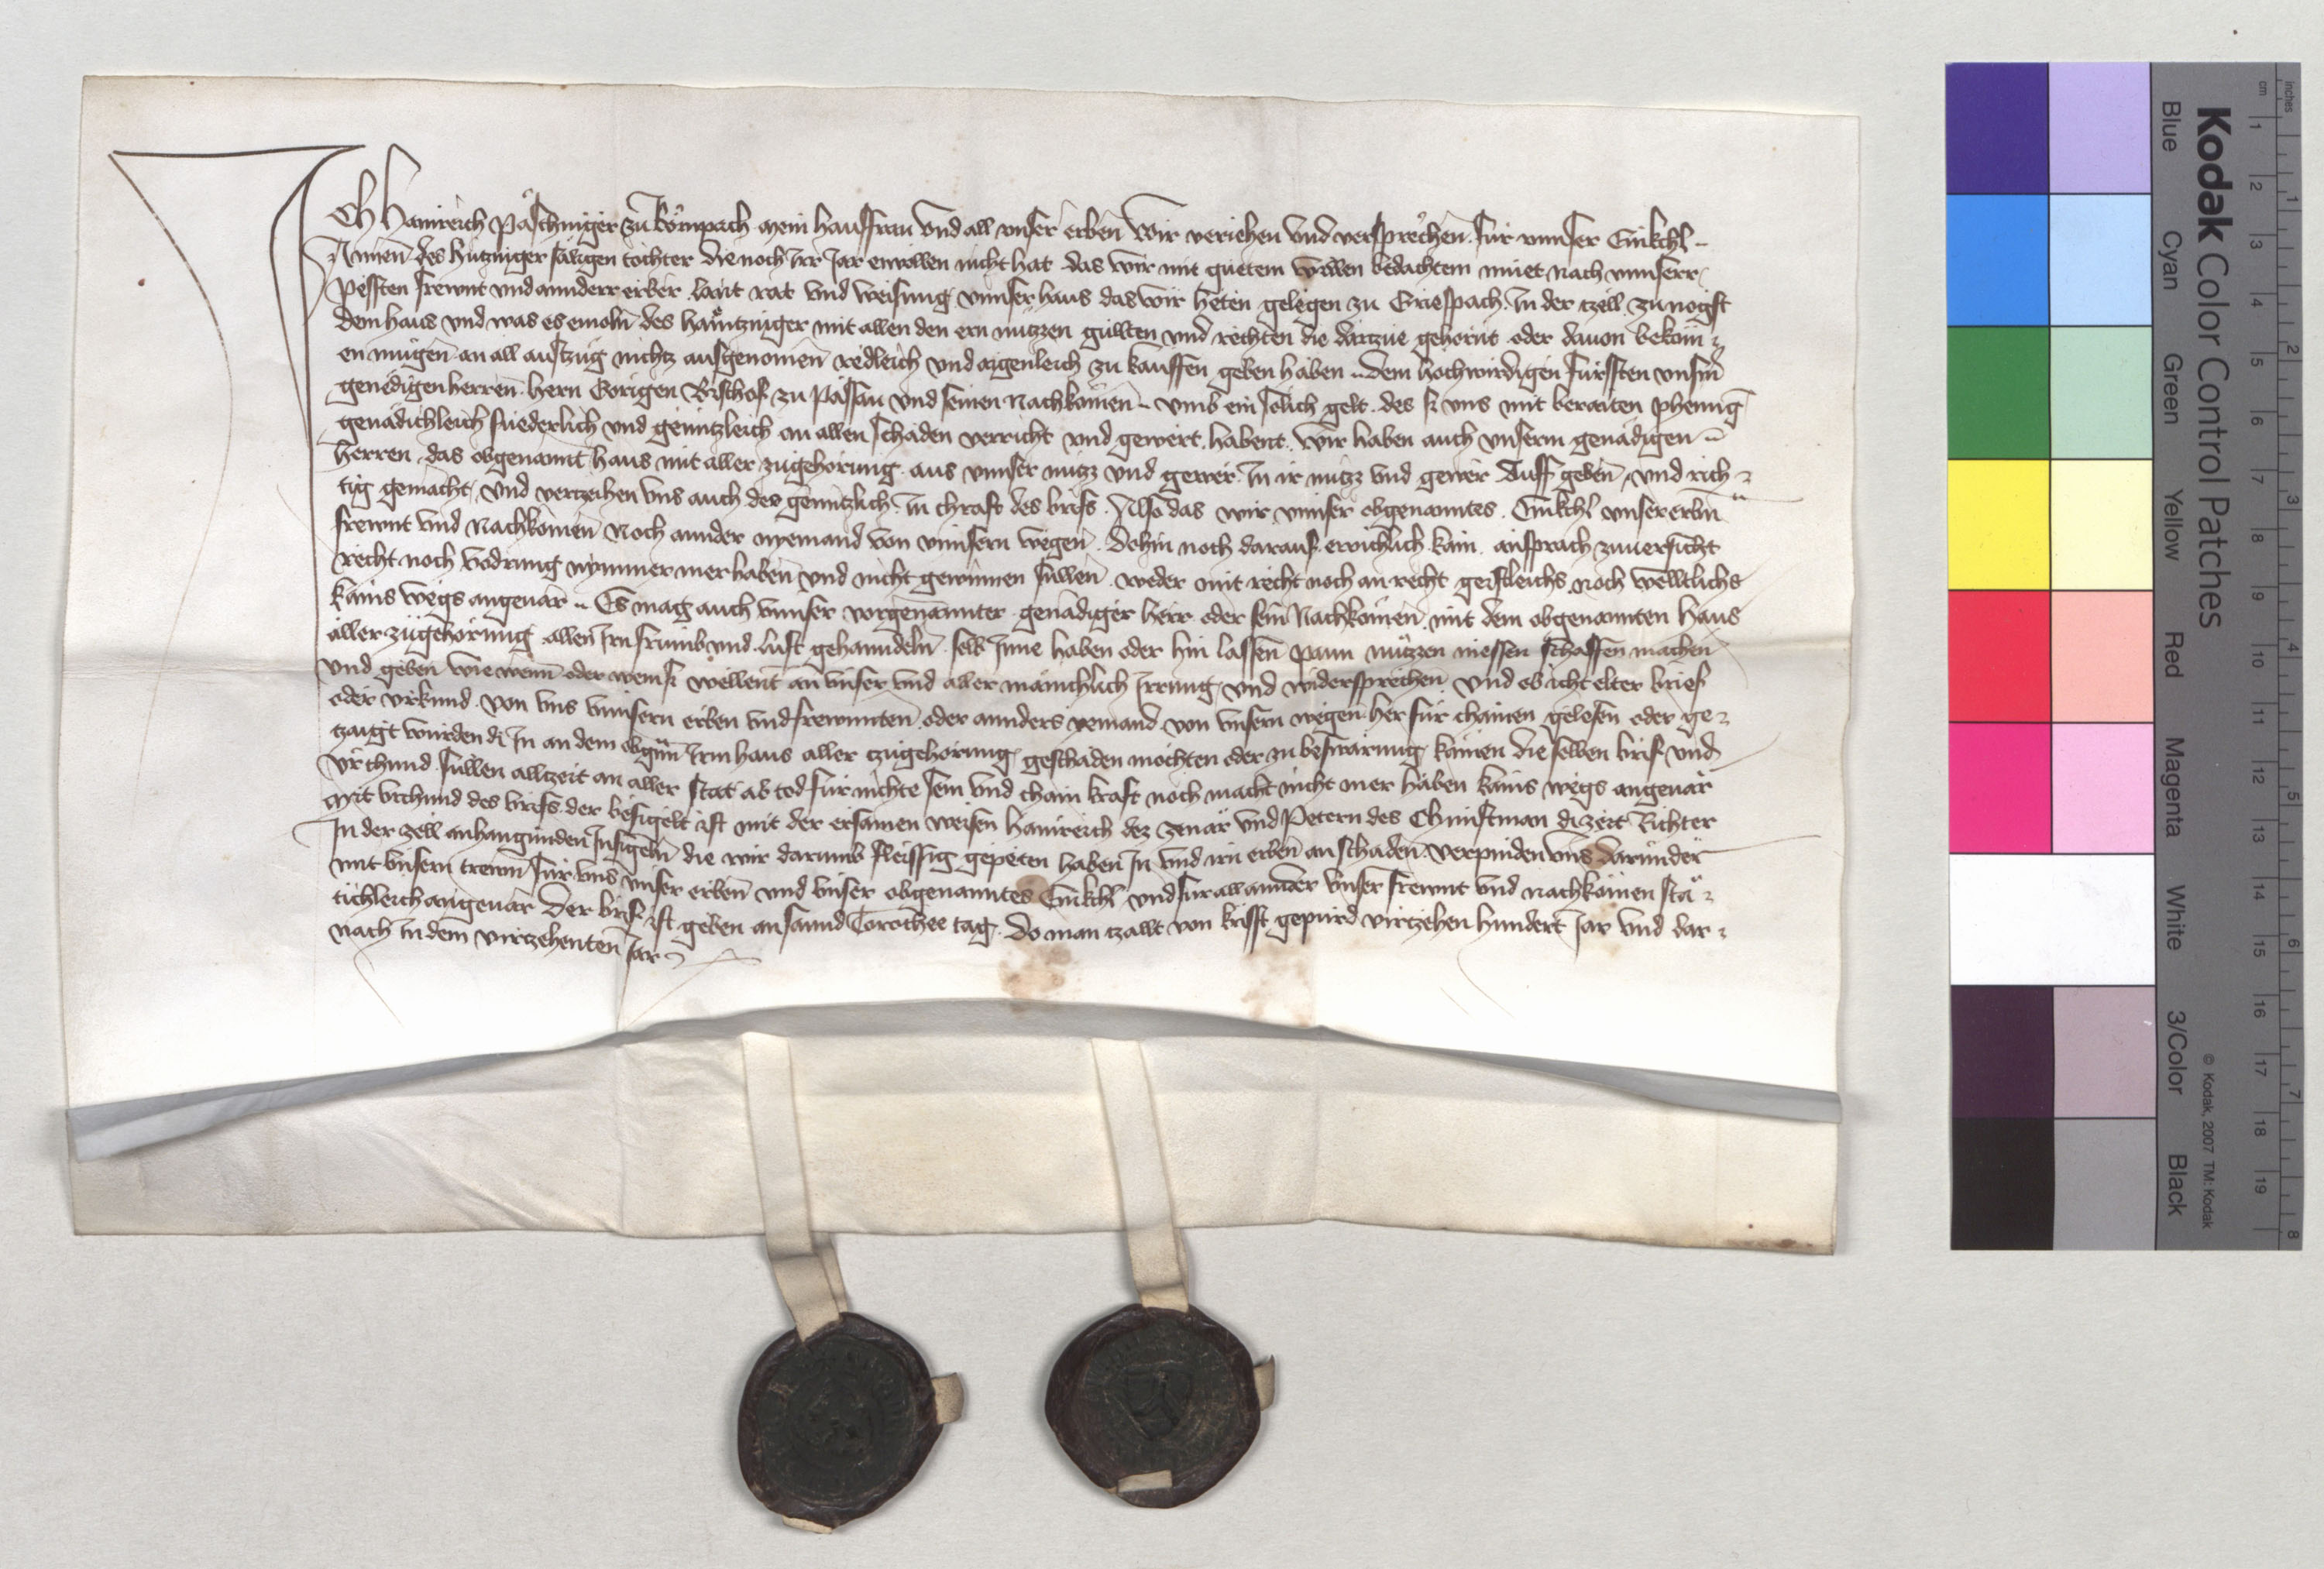 Ich Hainreich Påschinger zu Körnpach mein hausfrau vnd all vnser erben Wir veriehen vnd versprechen für vnnser Enikchl
Annen des Hutzinger säligen tochter die noch Irr Jar envollen nicht hat das wir mit guetem willen bedachtem muet nach vnnserr
pessten frewnt vnd annderr erber laüt rat vnd weisung vnnser haus das wir heten gelegen zu Griespach In der zell zu nogst
dem haus vnd was es emoln des Haintzniger mit allen den ern nützen gullten vnd rechten die dartzue gehornt oder dauon beköm
en mügen an all austzüg nichtz ausgenomen redleich vnd aigenleich zu kauffen geben haben dem hochwirdigen Fürssten vnsm
genedigen herren hern Gorigen Bischof zu Passau vnd seinen Nachkomen vmb ein solich gelt des si vns mit beraiten phennig
genädichleich friederlich vnd gëntzleich an allen schaden verricht vnd gewert habent wir haben auch vnserm genädigen
herren das obgenannt haus mit aller zugehörung aus vnnser nutz vnd gewer In ir nutz vnd gewer Auff geben vnd rich
tig gemacht vnd vertzeihen vns auch des gëntzlich In chraft des brifs Also das wir vnnser obgenanntes Enikchl vnser erbn
frewnt vnd Nachkomen Noch annder nyemand von vnnsern wegen dohin noch darauf ewichlich kain ansprach zuuersicht
recht noch vodrung nymmer mer haben vnd nicht gewinnen süllen weder mit recht noch an recht geistleichs noch welltlichs
kains wegs angenär Es mag auch vnnser vorgenannter genädiger herr oder sein Nachkomen mit dem obgenannten haus
aller zugehörung allen Irn frumb vnd lust gehanndeln selb Inne haben oder hin lassen pawn nützen niessen schaffen machen
vnd geben wie wenn oder wem si wellent an vnser vnd aller mänichlich Irrung vnd widersprechen vnd ob icht elter brief
oder vrkund von vns vnnsern erben vnd frewnnten oder annders yemand von vnsern wegen her für chämen gelesen oder ge
tzaigt wurden di In an dem obgnn Irm haus aller tzugehorung geschaden möchten oder zu beswärung kämen die selben brif vnd
vrchund sullen alltzeit an aller stat ab tod für nichte sein vnd chain kraft noch macht nicht mer haben kains wegs angenär
Mit vrchund des briefs der besigelt ist mit der ersamen weisen Hainreich dez Zenär vnd Petern des Christman di zeit Richter
In der zell anhangunden Insigeln die wir darumb fleissig gepeten haben In vnd irn erben an schaden verpinden vns darunder
mit vnsern trewn für vns vnser erben vnd vnser obgenanntes Enikchl vnd für all annder vnser frewnt vnd nachkömen stä
tichleich angenär Der brif ist geben an sannd Dorothee tag Do man tzallt von krisst gepurd virtzehen hundert Jar vnd dar
nach In dem virtzehenten Jar
Kodak Color Control Patches
Blue Cyan Green Yellow Red Magenta White 3/Color Black
© Kodak, 2007 TM: Kodak
cm 1 2 3 4 5 6 7 8 9 10 11 12 13 14 15 16 17 18 19
inches 1 2 3 4 5 6 7 8